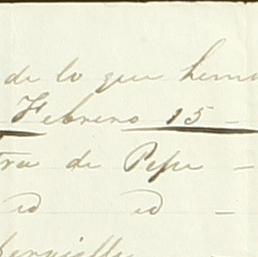 de lo que hemo
Febrero 15 -
tra de Pepe -
id id -